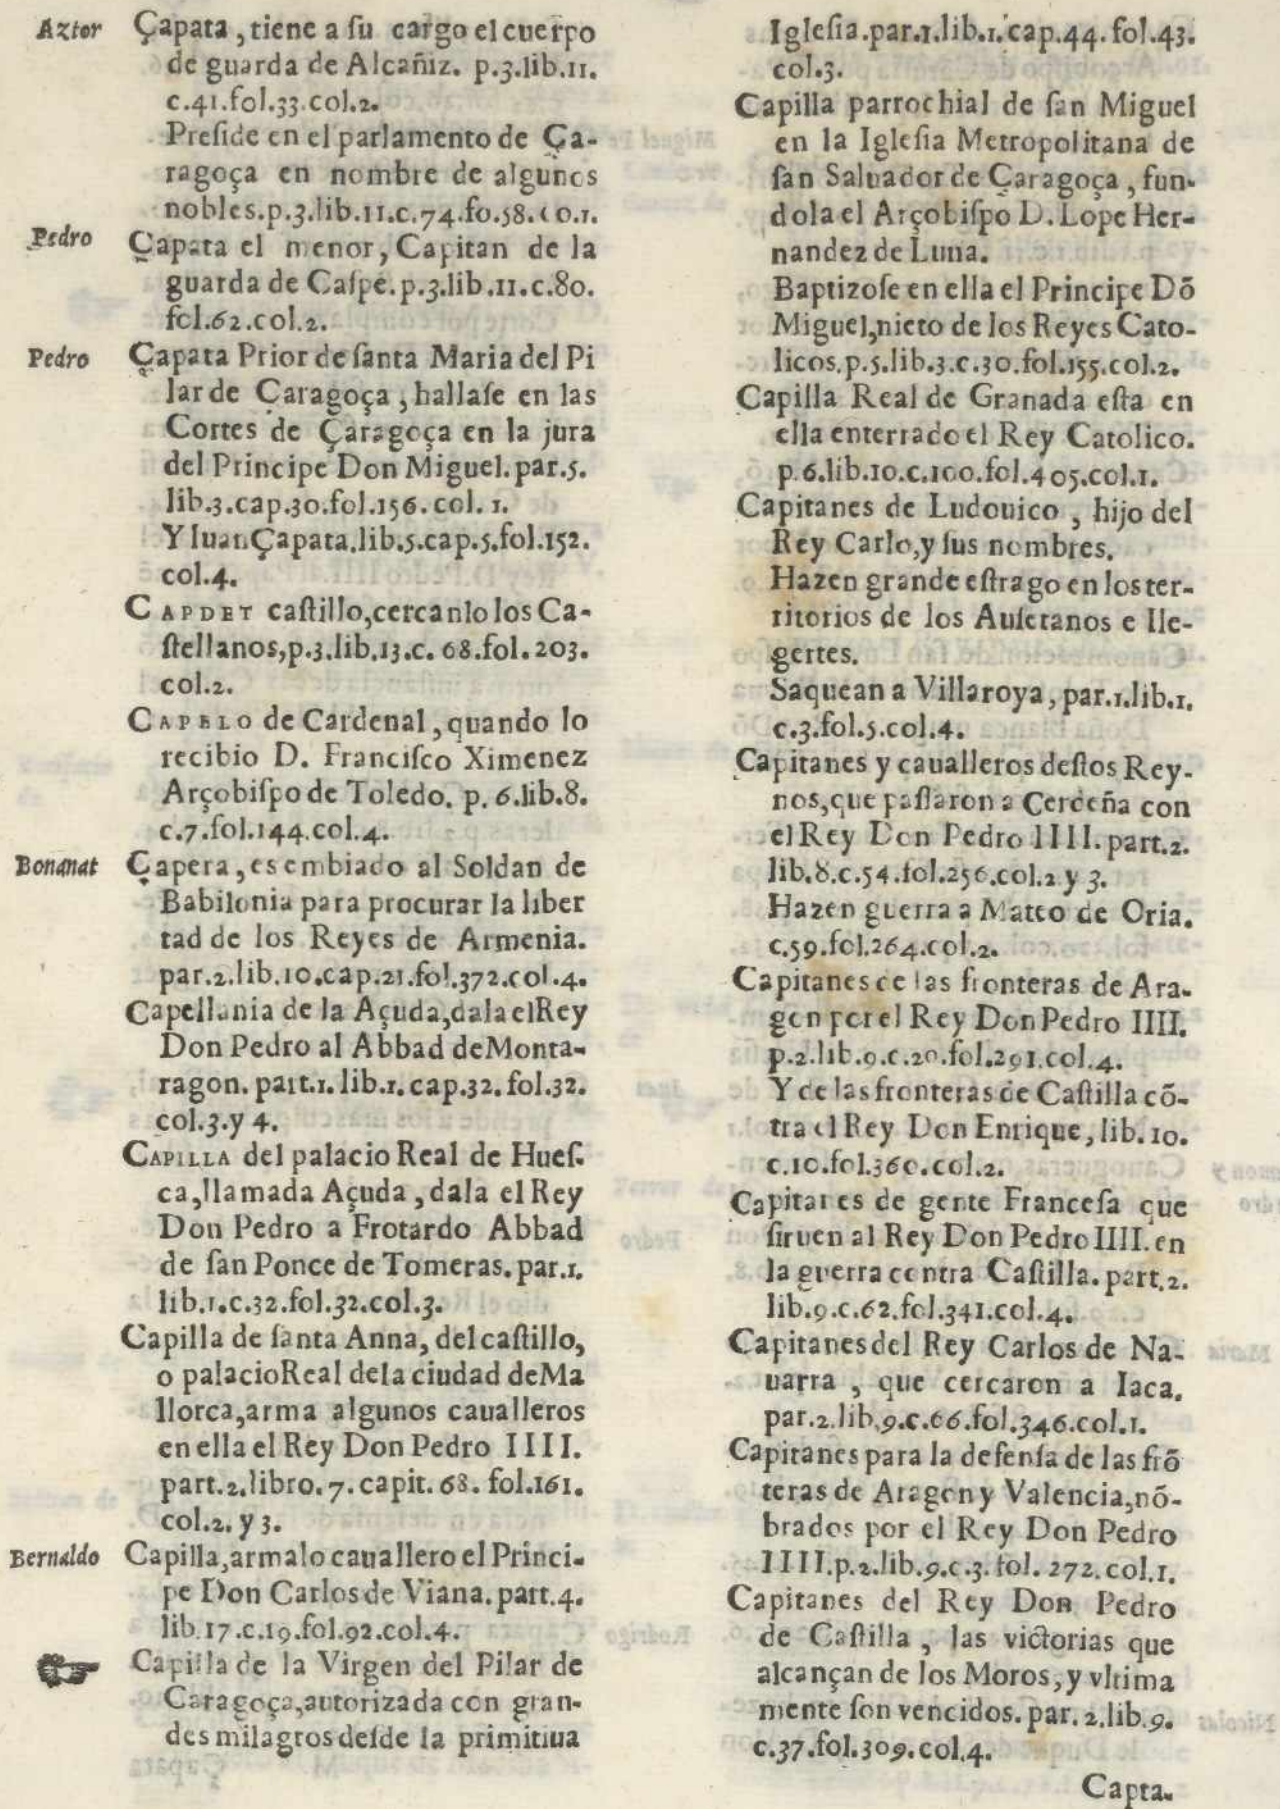 Aztor Çapata, tiene a ſu cargo el cuerpo
de guarda de Alcañiz. p.3.lib.11.
c.41.fol.33.col.2.
Preſide en el parlamento de Ça-
ragoça en nombre de algunos
nobles.p.3.lib.11.c.74.fo.58.co.1.
Pedro Çapata el menor, Capitan de la
guarda de Caſpe.p.3.lib.11.c.80.
fol.62.col.2.
Pedro Çapata Prior de ſanta Maria del Pi
lar de Çaragoça, hallaſe en las
Cortes de Çaragoça en la jura
del Principe Don Miguel.par.5.
lib.3.cap.30.fol.156.col. 1.
Y Iuan Çapata.lib.5.cap.5.fol.152.
col.4.
CAPDET caſtillo,cercanlo los Ca-
ſtellanos,p.3.lib.13.c. 68.fol.203.
col.2.
CAPELO de Cardenal, quando lo
recibio D. Franciſco Ximenez
Arçobiſpo de Toledo. p. 6.lib.8.
c.7.fol.144.col.4.
Bonanat Çapera, es embiado al Soldan de
Babilonia para procurar la liber
tad de los Reyes de Armenia.
par.2.lib.10.cap.21.fol.372.col.4.
Capellania de la Açuda,dala el Rey
Don Pedro al Abbad de Monta-
ragon. part.1. lib.1. cap.32. fol.32.
col.3.y 4.
CAPILLA del palacio Real de Hueſ-
ca,llamada Açuda, dala el Rey
Don Pedro a Frotardo Abbad
de ſan Ponce de Tomeras.par.1.
lib.1.c.32.fol.32.col.3.
Capilla de ſanta Anna, del caſtillo,
o palacio Real dela ciudad de Ma
llorca,arma algunos caualleros
en ella el Rey Don Pedro IIII.
part.2.libro.7. capit. 68. fol.161.
col.2. y 3.
Bernaldo Capilla,armalo cauallero el Princi-
pe Don Carlos de Viana.part.4.
lib.17.c.19.fol.92.col.4.
☞ Capilla de la Virgen del Pilar de
Caragoça,autorizada con gran-
des milagros deſde la primitiua
Igleſia.par.1.lib.1.cap.44.fol.43.
col.3.
Capilla parrochial de ſan Miguel
en la Igleſia Metropolitana de
ſan Saluador de Çaragoça, fun-
dola el Arçobiſpo D. Lope Her-
nandez de Luna.
Baptizoſe en ella el Principe Dõ
Miguel,nieto de los Reyes Cato-
licos.p.5.lib.3.c.30.fol.155.col.2.
Capilla Real de Granada eſta en
ella enterrado el Rey Catolico.
p.6.lib.10.c.100.fol.405.col.1.
Capitanes de Ludouico, hijo del
Rey Carlo,y ſus nombres.
Hazen grande eſtrago en los ter-
ritorios de los Auſetanos e Ile-
gertes.
Saquean a Villaroya, par.1.lib.1.
c.3.fol.5.col.4.
Capitanes y caualleros deſtos Rey-
nos,que paſſaron a Cerdeña con
el Rey Don Pedro IIII. part.2.
lib.8.c.54.fol.256.col.2 y 3.
Hazen guerra a Matteo de Oria.
c.59.fol.264.col.2.
Capitanes de las fronteras de Ara-
gon por el Rey Don Pedro IIII.
p.2.lib.9.c.20.fol.291.col.4.
Y de las fronteras de Caſtilla cõ-
tra el Rey Don Enrique, lib.10.
c.10.fol.360.col.2.
Capitanes de gente Franceſa que
ſiruen al Rey Don Pedro IIII. en
la guerra contra Caſtilla. part.2.
lib.9.c.62.fol.341.col.4.
Capitanes del Rey Carlos de Na-
uarra, que cercaron a Iaca.
par.2.lib.9.c.66.fol.346.col.1.
Capitanes para la defenſa de las frõ
teras de Aragon y Valencia,nõ-
brados por el Rey Don Pedro
IIII.p.2.lib.9.c.3.fol. 272.col.1.
Capitanes del Rey Don Pedro
de Caſtilla, las victorias que
alcançan de los Moros, y vltima
mente ſon vencidos. par. 2.lib.9.
c.37.fol.309.col.4.
Capta-